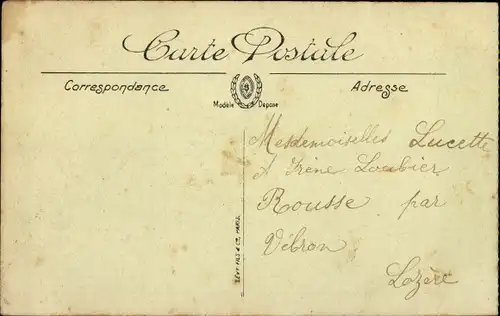 Carte Postale
Correspondance
Adresse
Modèle Déposé
Mesdemoiselles Lucette
& Irène Loubier
Rousse par
Vébron
Lozère
LÉVY FILS & CIE, PARIS.